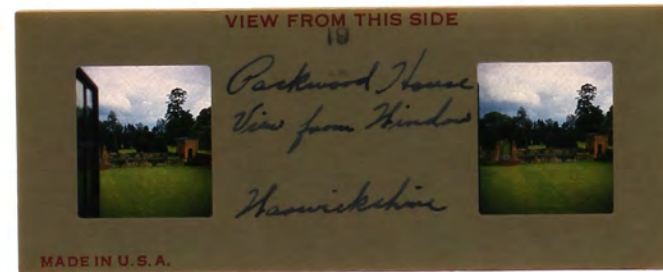 VIEW FROM THIS SIDE
19
Packwood House
View from Window
Warwickshire
MADE IN U.S.A.